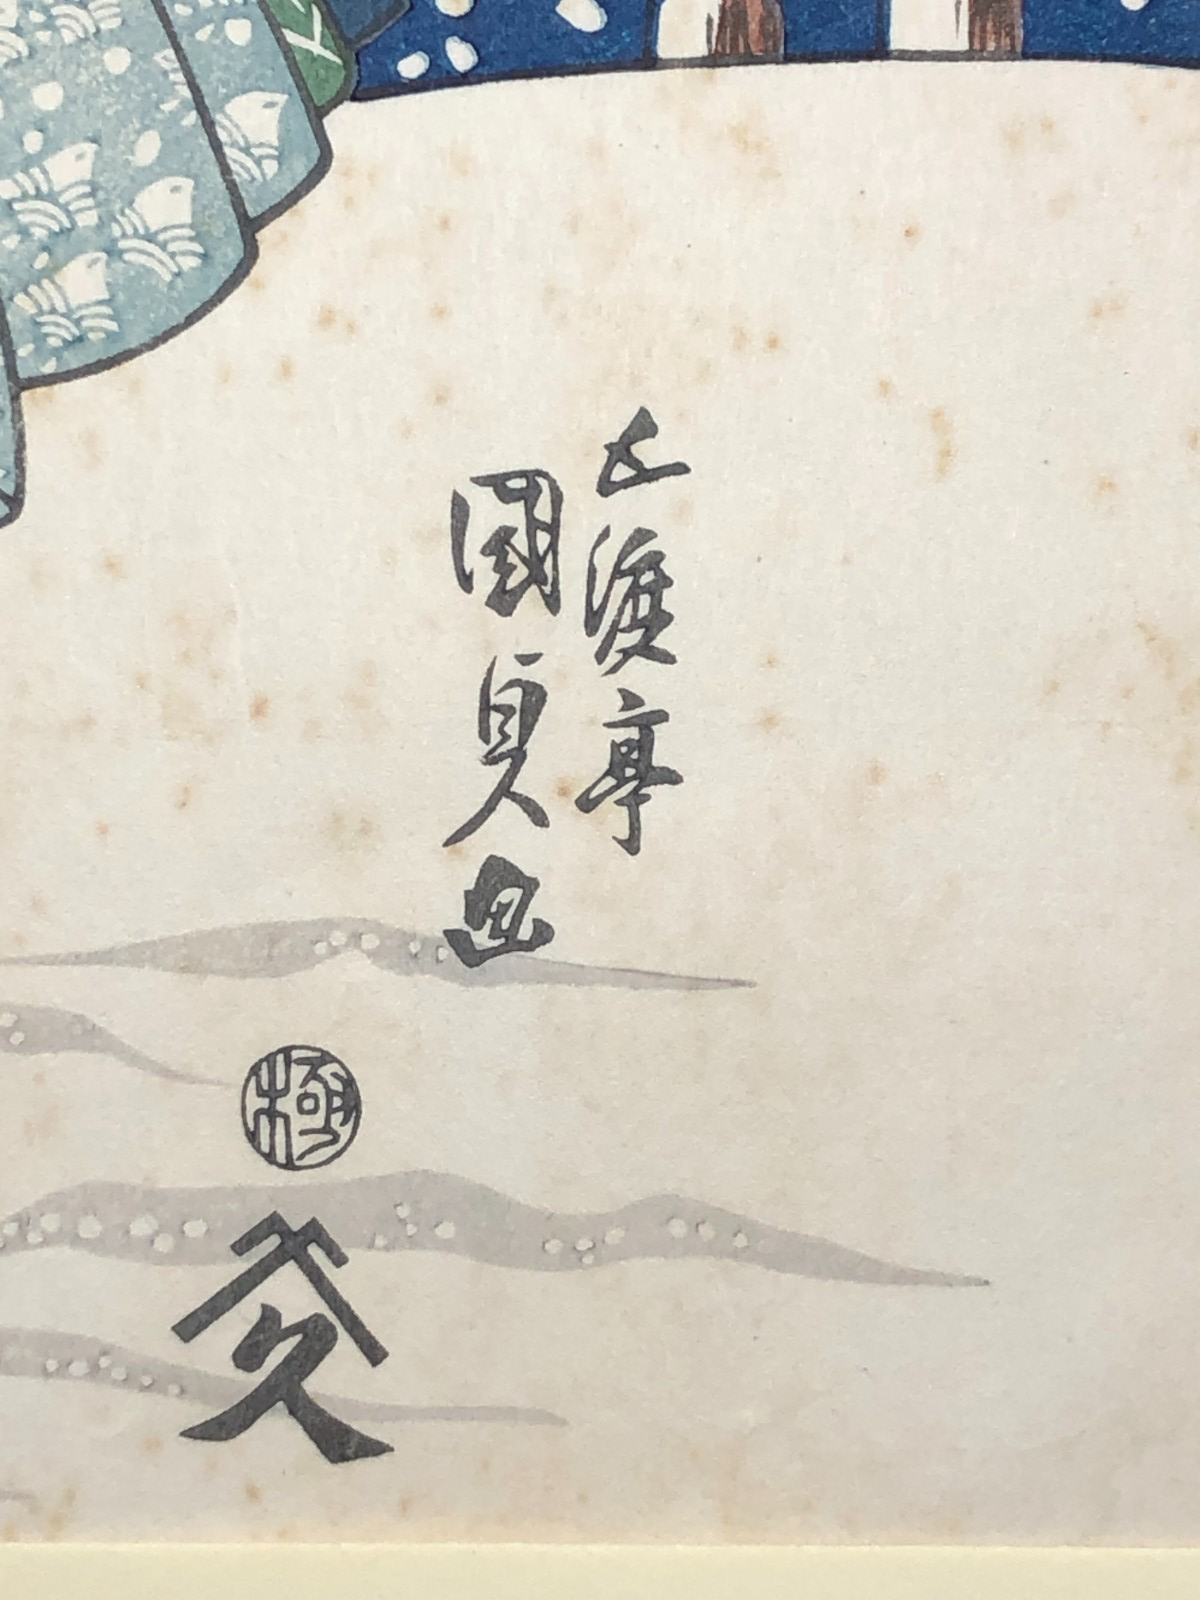 五渡亭
國貞画
極
久